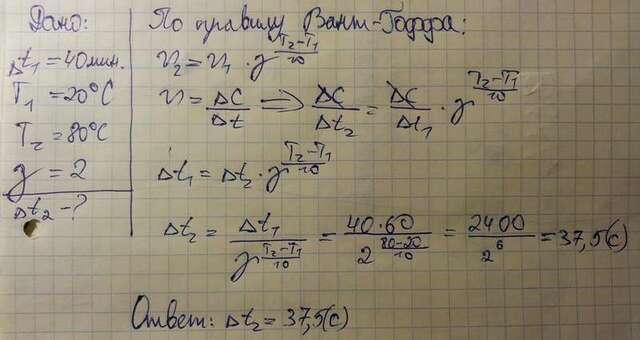 Дано:
Δt₁ = 40 мин.
T₁ = 20°C
T₂ = 80°C
γ = 2
Δt₂ - ?
По правилу Вант-Гоффа:
v₂ = v₁ · γ^((T₂-T₁)/10)
v = ΔC/Δt ⟹ ΔC/Δt₂ = ΔC/Δt₁ · γ^((T₂-T₁)/10)
Δt₁ = Δt₂ · γ^((T₂-T₁)/10)
Δt₂ = Δt₁/γ^((T₂-T₁)/10) = 40·60/2^((80-20)/10) = 2400/2^6 = 37,5(с)
Ответ: Δt₂ = 37,5(с)